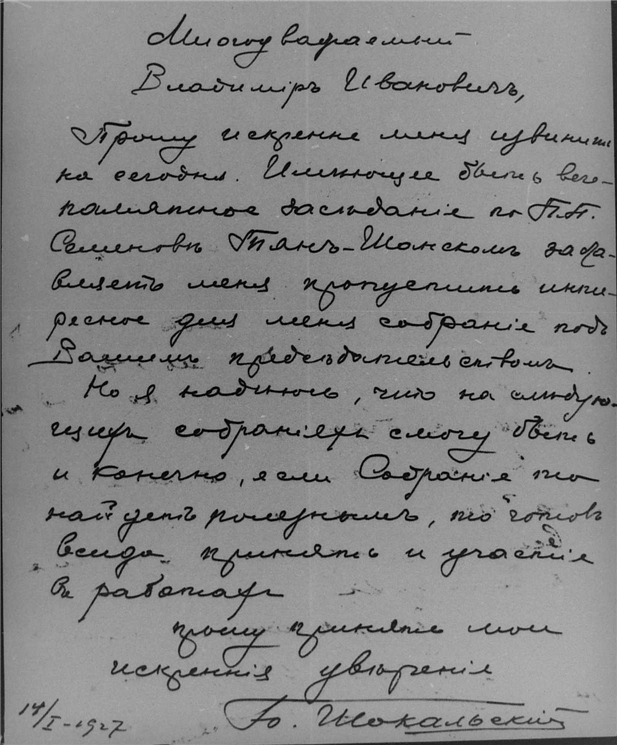 Многоуважаемый
Владиміръ Ивановичъ,
Прошу искренне меня извинить
на сегодня. Имеющее быть вече-
памятное засѣданіе по П.П.
Семеновѣ Тянъ-Шанскомъ заста-
вляетъ меня пропустить инте-
ресное для меня собраніе подъ
Вашимъ предсѣдательствомъ.
Но я надѣюсь, что на слѣдую-
щихъ собраніяхъ смогу быть
и конечно, если Собраніе то
найдетъ полезнымъ, то готовъ
всегда принять и участіе
въ работахъ
прошу принять мои
искреннія увѣренія
Ю. Шокальский
14/I-1927